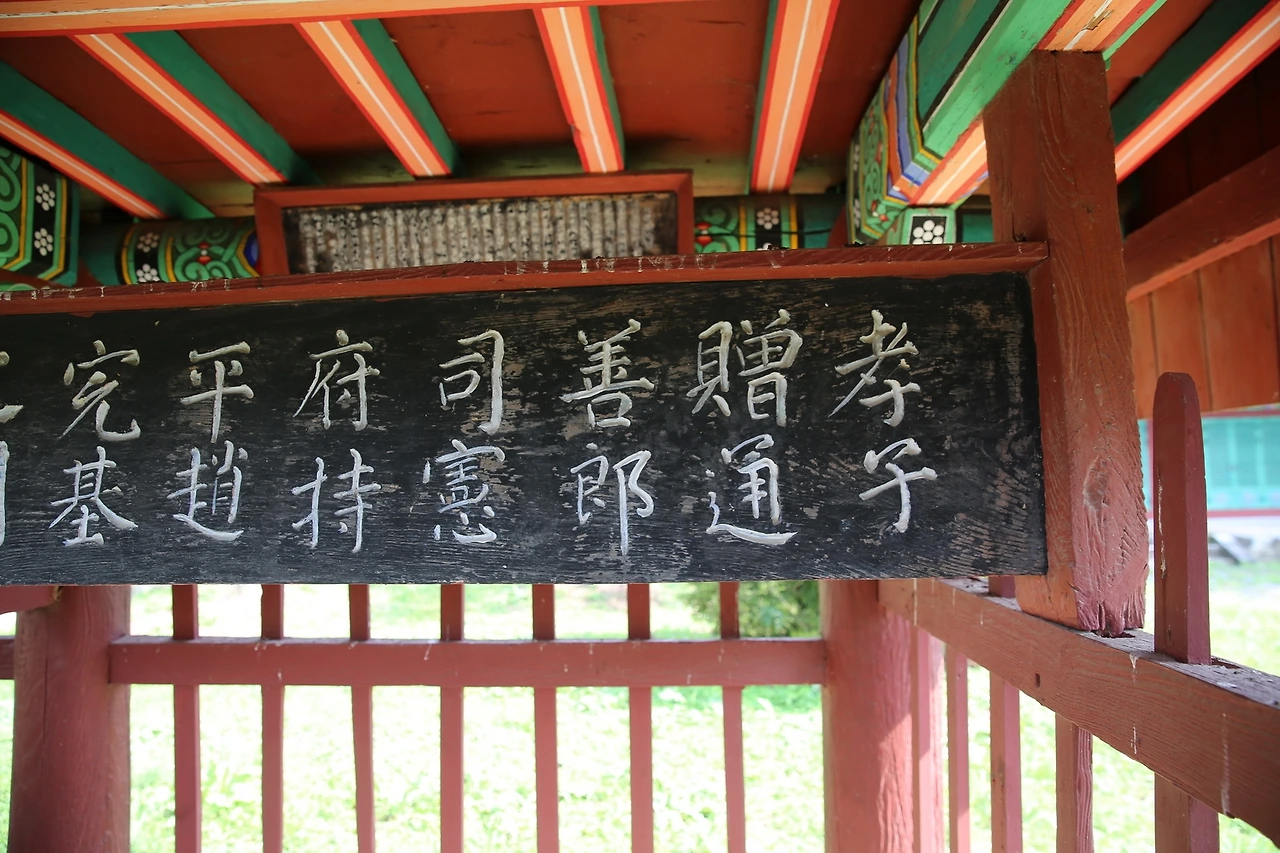 孝子
贈通
善郎
司憲
府持
平趙
完基